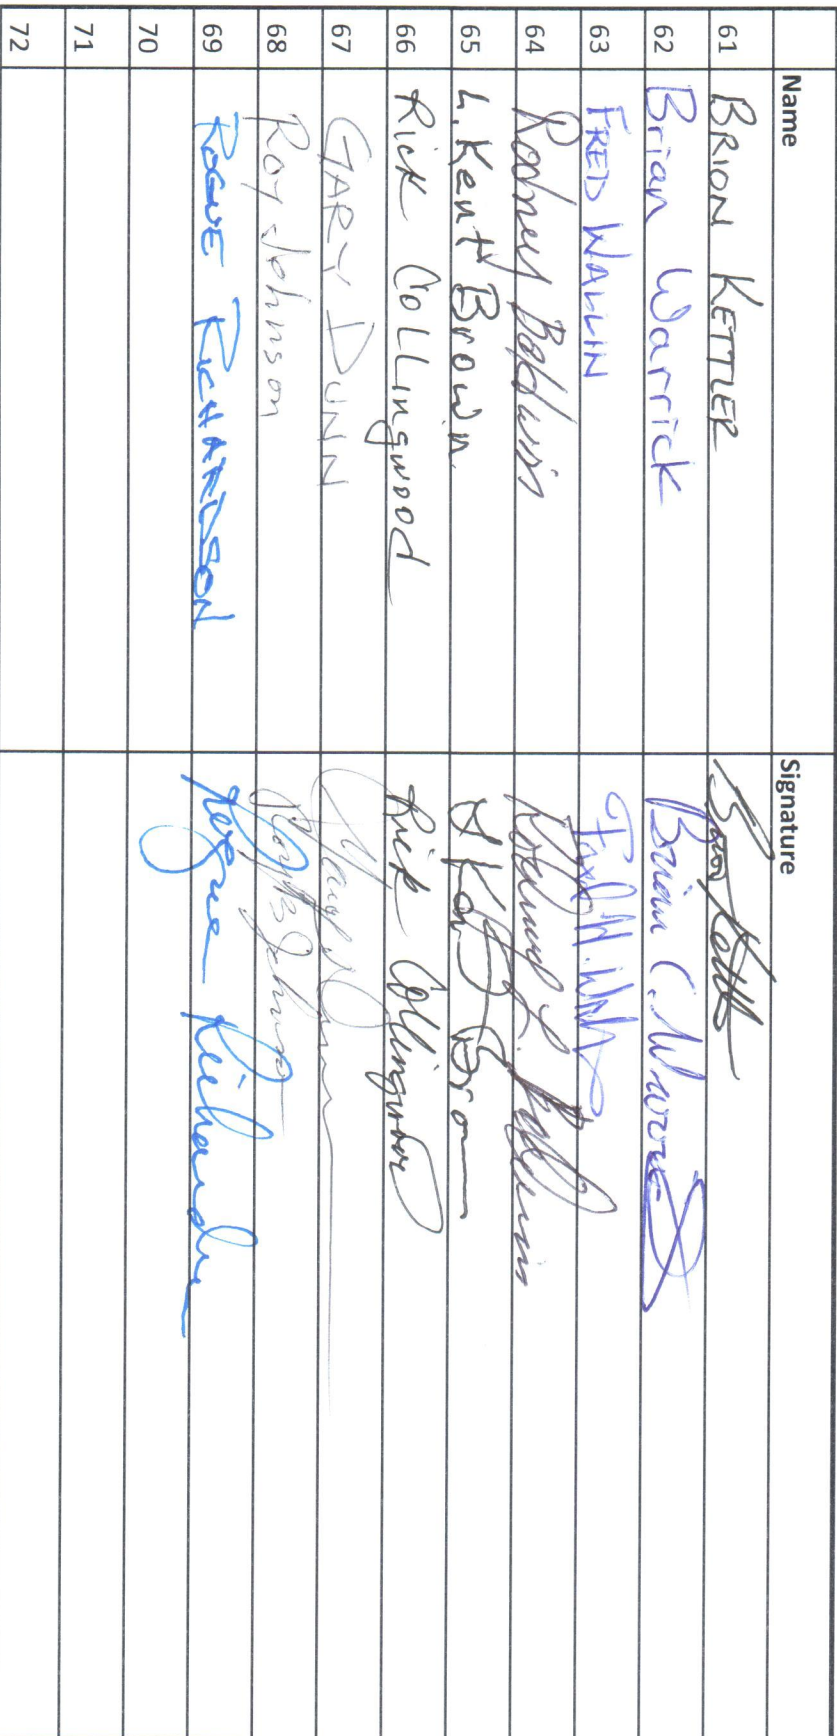 Name Signature
61 BRION KETTLER
62 Brian Warrick Brian C. Warrick
63 FRED WALLIN Fred W. Wallin
64 Rodney Baldwin Rodney L. Baldwin
65 L. Kent Brown L Kent Brown
66 Rick Collingwood Rick Collingwood
67 GARY DUNN Gary Dunn
68 Roy Johnson Roy B Johnson
69 ROGUE RICHARDSON Rogue Richardson
70
71
72